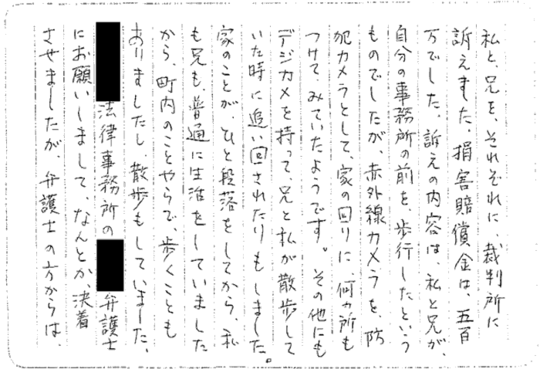 私と、兄を、それぞれに、裁判所に
訴えました、損害賠償金は、五百
万でした、訴えの内容は、私と兄が、
自分の事務所の前を、歩行したという
ものでしたが、赤外線カメラを、防
犯カメラとして、家の回りに、何ヵ所も
つけて、みていたようです。その他にも
デジカメを持って、兄と私が散歩して
いた時に追い回されたりもしました。
家のことが、ひと段落をしてから、私
も兄も普通に生活をしていました
から、町内のことやらで、歩くことも
ありましたし散歩もしていました、
法律事務所の弁護士
にお願いしまして、なんとか、決着
させましたが、弁護士の方からは、